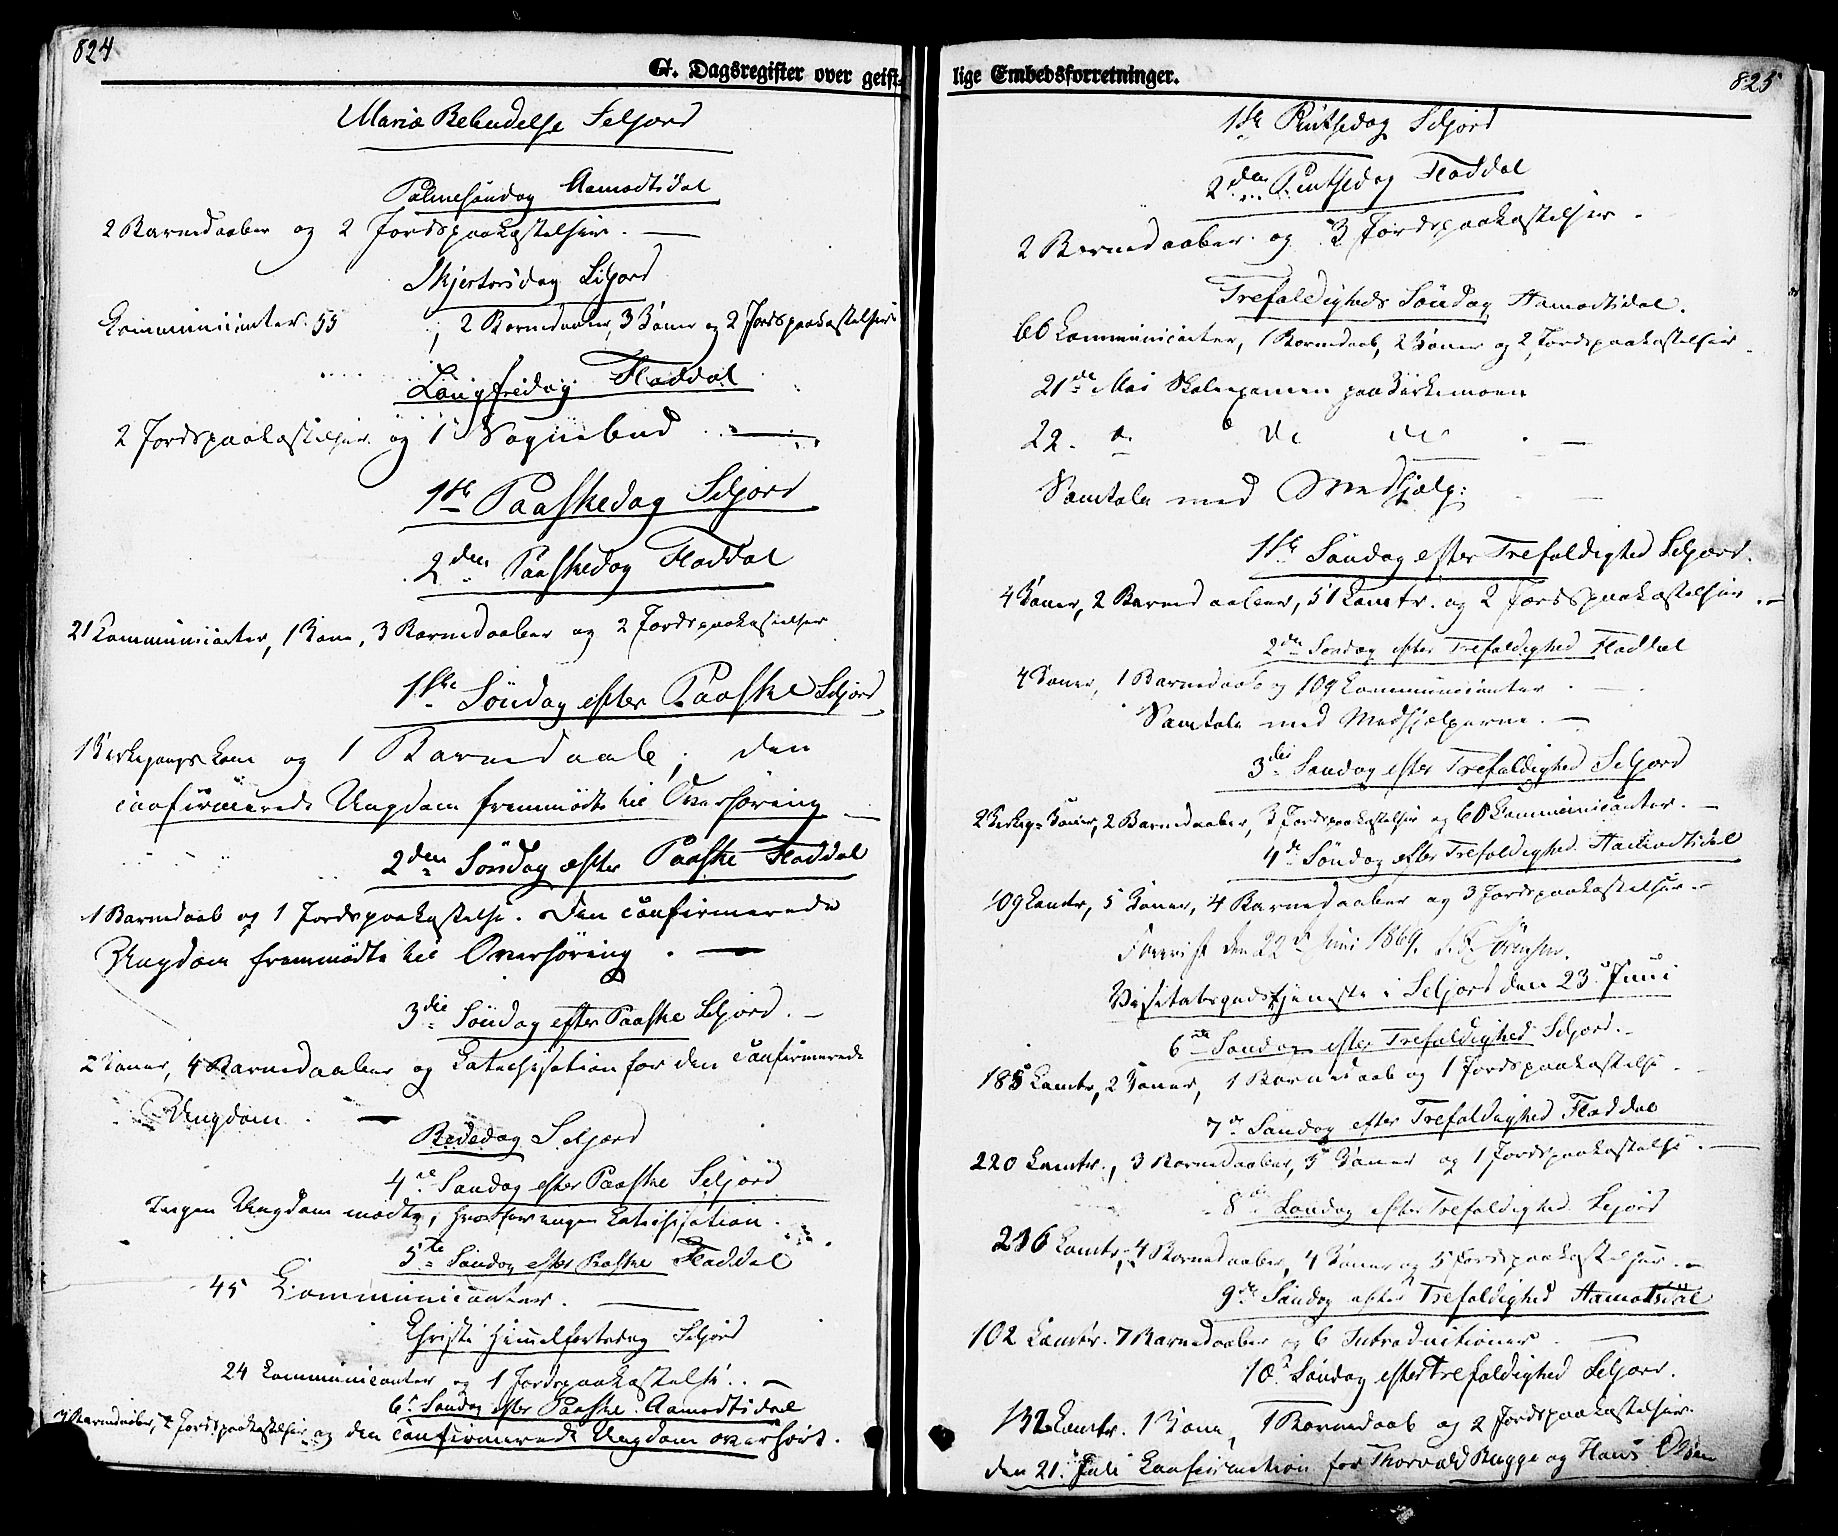 824
G. Dagsregister over geist-
Mariæ Bebudelse Seljord
Palmesøndag Aamodtsdal
2 Barnedaaber og 2 Jordspaakastelser.
Skjertorsdag Seljord
Communicanter 55, 2 Barnedaaber, 3 Koner og 2 Jordspaakastelser
Langfredag Fladdal
2 Jordspaakastelser og 1 Sognebud
1ste Paaskedag Seljord
2den Paaskedag Fladdal
21 Communicanter, 1 Kone, 3 Barnedaaber og 2 Jordspaakastelser
1ste Søndag efter Paaske Seljord
1 Kirkegangskone og 1 Barnedaab; den
confirmerede Ungdom fremmødte til Overhøring
2den Søndag efter Paaske Fladdal
1 Barnedaab og 1 Jordspaakastelse. Den confirmerede
Ungdom fremmødte til Overhøring.
3die Søndag efter Paaske Seljord.
2 Koner, 4 Barnedaaber og Catechisation for den confirmerede
Ungdom.
Bededag Seljord
4de Søndag efter Paaske Seljord
Ingen Ungdom mødte, hvorfor ingen Catechisation.
5te Søndag efter Paaske Fladdal
45 Communicanter.
Christi Himmelfartsdag Seljord
24 Communicanter og 1 Jordspaakastelse.
6te Søndag efter Paaske Aamodtsdal
Barnedaaber, 2 Jordspaakastelser og den confirmerede Ungdom overhørt.
lige Embedsforretninger.
825
1ste Pintsedag Seljord
2den Pintsedag Fladdal
2 Barnedaaber og 3 Jordspaakastelser.
Trefoldigheds Søndag Aamodtsdal.
66 Communicanter, 1 Barnedaab, 2 Koner og 2 Jordspaakastelser
21de Mai Skoleexamen paa Kirkemoen
22. do do do
Samtale med Medhjælp:
1ste Søndag efter Trefoldighed Seljord.
4 Koner, 2 Barnedaaber, 51 Comtr. og 2 Jordspaakastelser.
2den Søndag efter Trefoldighed Fladdal
4 Koner, 1 Barnedaab og 109 Communicanter.
Samtale med Medhjælperne.
3die Søndag efter Trefoldighed Seljord
2 Kirkeg: Koner, 2 Barnedaaber, 3 Jordspaakastelser og 60 Communicanter.
4de Søndag efter Trefoldighed Aamodtsdal
109 Comtr, 5 Koner, 4 Barnedaaber og 3 Jordspaakastelser
Forevist den 22de Juni 1869.
Visitatsgudstjeneste i Seljord den 23 Juni
6te Søndag efter Trefoldighed Seljord.
185 Comtr, 2 Koner, 1 Barnedaab og 1 Jordspaakastelse
7de Søndag efter Trefoldighed Fladdal
220 Comtr., 3 Barnedaaber, 5 Koner og 1 Jordspaakastelse.
8de Søndag efter Trefoldighed Sejord
216 Comtr, 4 Barnedaaber, 4 Koner og 5 Jordspaakastelser.
9de Søndag efter Trefoldighed Aamotsdal
102 Comtr. 7 Barnedaaber og 6 Introductioner.
10de Søndag efter Trefoldighed Seljord.
132 Comtr. 1 Kone, 1 Barnedaab og 2 Jordspaakastelser.
den 21. Juli Confirmation for Thorvald Bugge og Hans Olsen